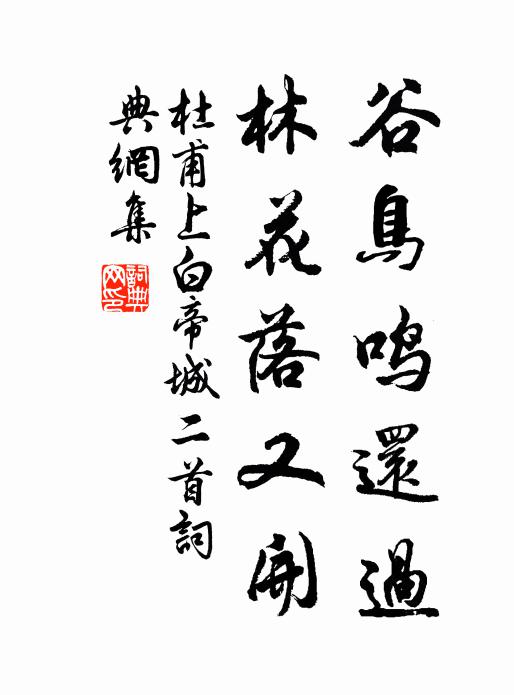 谷鳥鳴還過
林花落又開
杜甫上白帝城二首詞
典網集
詞典
网印